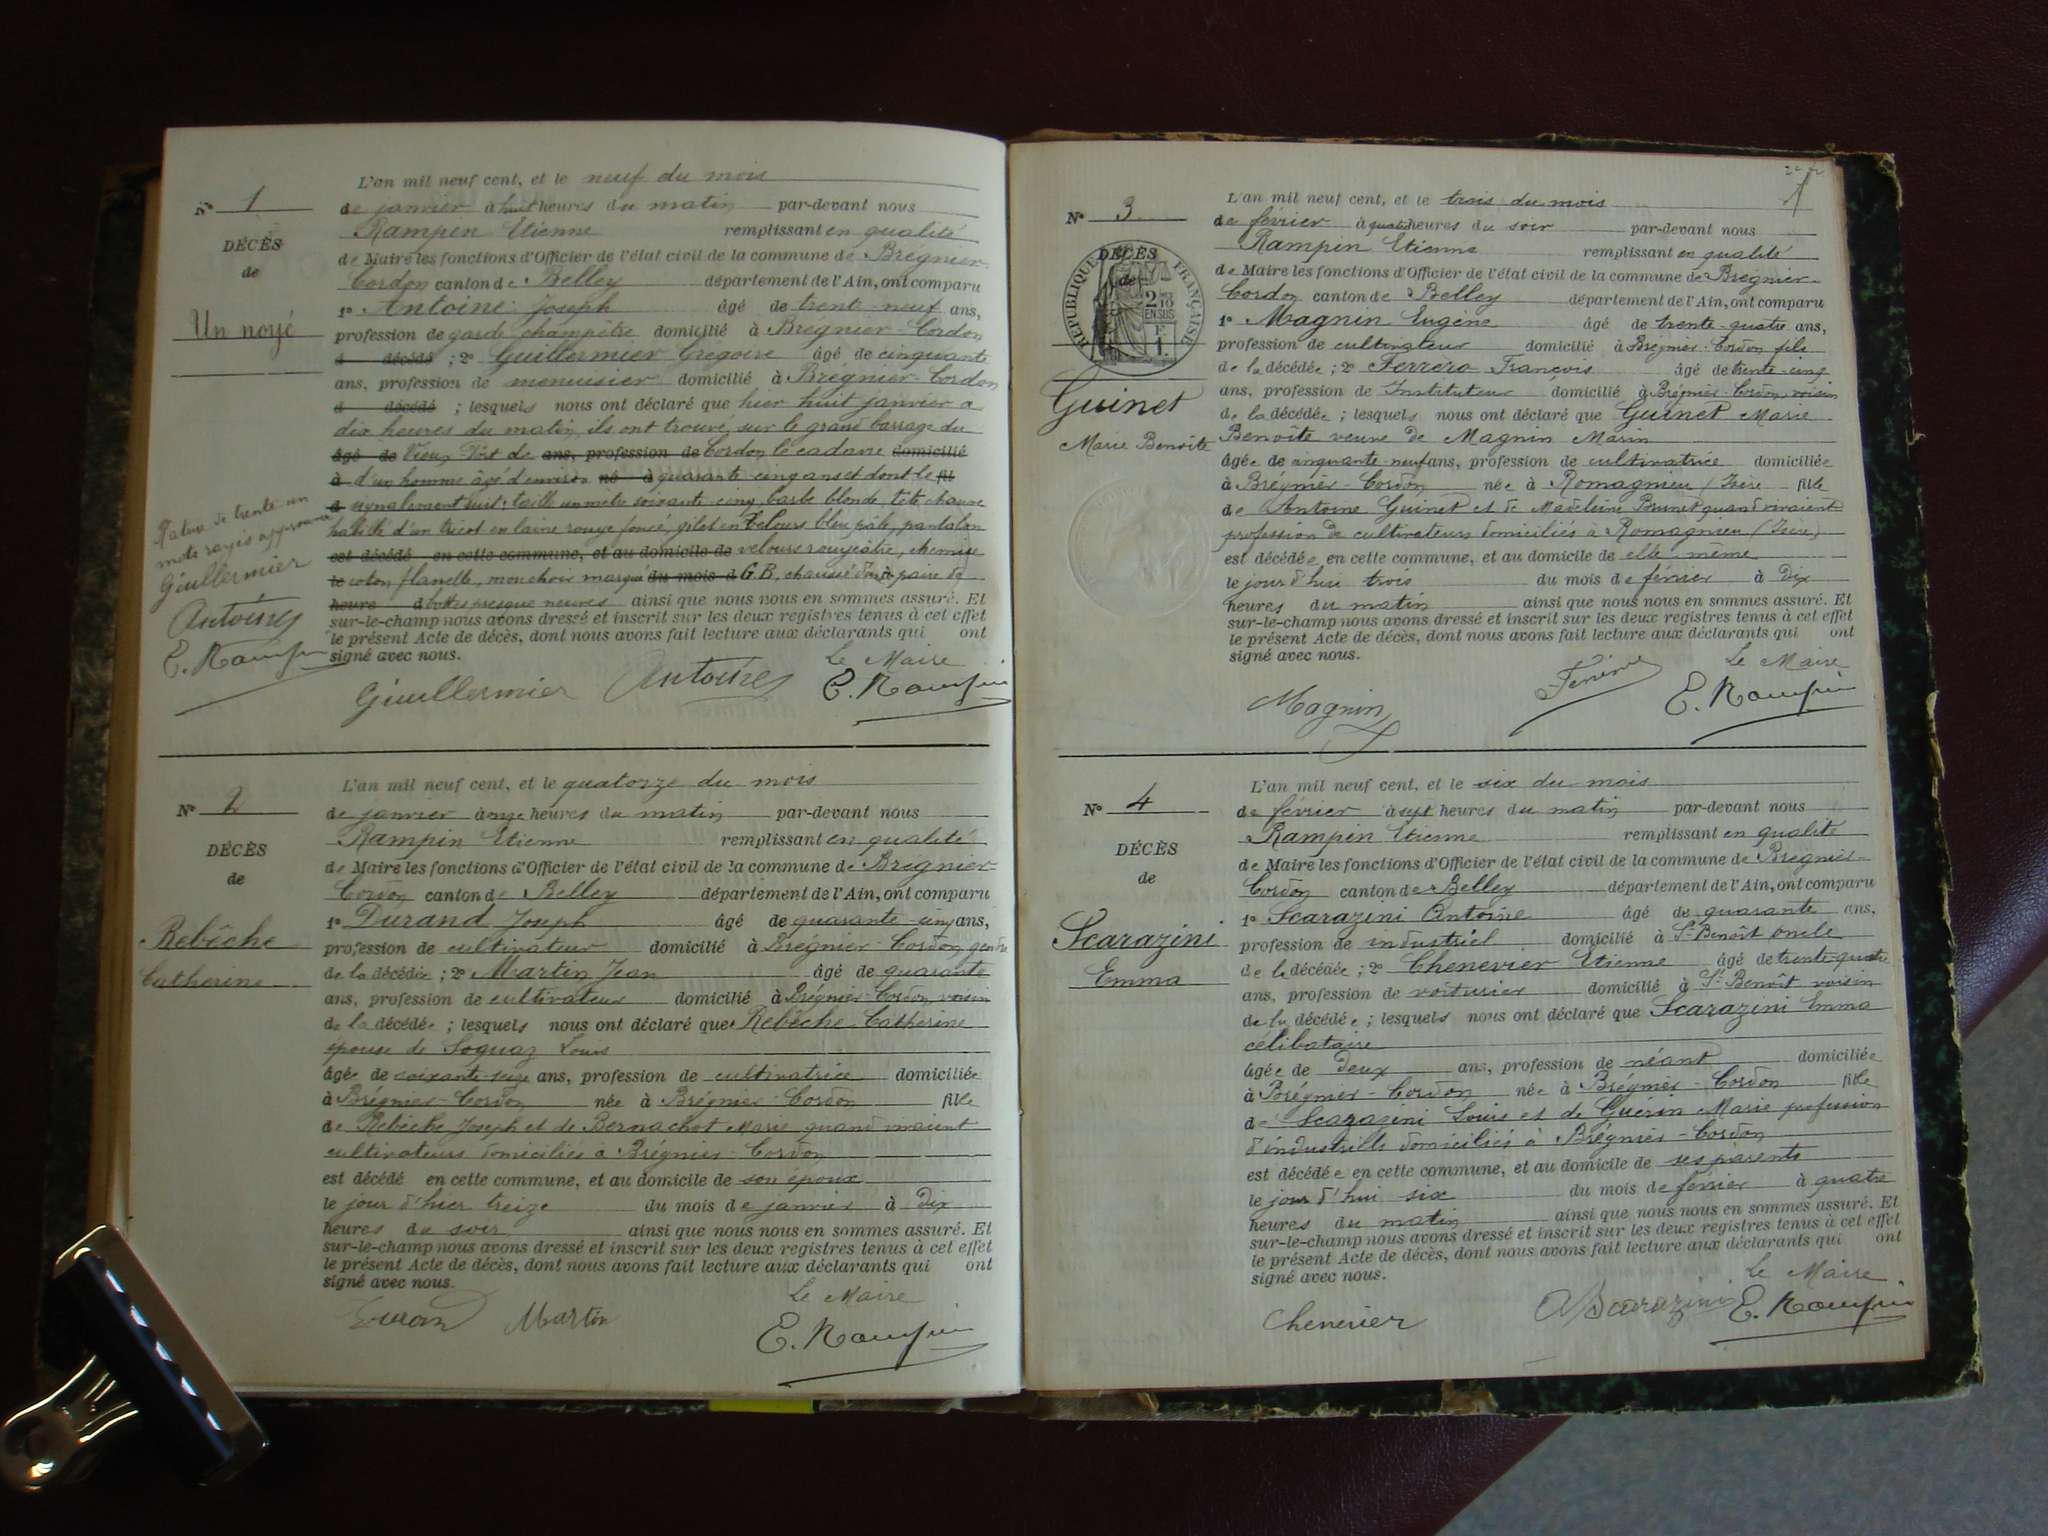 N° 1
DÉCÈS
de
Un noyé
L'an mil neuf cent, et le neuf du mois
de janvier à huit heures du matin par-devant nous
Rampin Etienne remplissant en qualité
de Maire les fonctions d'Officier de l'état civil de la commune de Brégnier-
Cordon canton de Belley département de l'Ain, ont comparu
1° Antoine Joseph âgé de trente-neuf ans,
profession de garde champêtre domicilié à Brégnier-Cordon
d décédé ; 2° Guillermier Grégoire âgé de cinquante
ans, profession de menuisier domicilié à Brégnier-Cordon
d décédé ; lesquels nous ont déclaré que hier huit janvier à
dix heures du matin, ils ont trouvé, sur le grand barrage du
âgé de Vieux Port de ans, profession de Cordon le cadavre domicilié
à d'un homme âgé d'environ né à quarante cinq ans et dont le fil
d signalement suit: taille un mètre soixante cinq, barbe blonde, tête chauve
habillé d'un tricot en laine rouge foncé, gilet en velours bleu pâle, pantalon
est décédé en cette commune, et au domicile de velours rougeâtre, chemise
le coton, flanelle, mouchoir marqué du mois d G.B, chaussé d'une à paire de
heure d bottes presque neuves ainsi que nous nous en sommes assuré. Et
sur-le-champ nous avons dressé et inscrit sur les deux registres tenus à cet effet
le présent Acte de décès, dont nous avons fait lecture aux déclarants qui ont
signé avec nous. Le Maire
Guillermier Antoine E. Rampin
Rature de trente un
mots rayés approuvée
Guillermier
Antoine
E. Rampin
N° 2
DÉCÈS
de
Rebêche
Catherine
L'an mil neuf cent, et le quatorze du mois
de janvier à onze heures du matin par-devant nous
Rampin Etienne remplissant en qualité
de Maire les fonctions d'Officier de l'état civil de la commune de Brégnier-
Cordon canton de Belley département de l'Ain, ont comparu
1° Durand Joseph âgé de quarante-cinq ans,
profession de cultivateur domicilié à Brégnier-Cordon, gendre
de la décédée ; 2° Martin Jean âgé de quarante
ans, profession de cultivateur domicilié à Brégnier-Cordon, voisin
de la décédée ; lesquels nous ont déclaré que Rebêche Catherine
épouse de Soquaz Louis
âgée de soixante-seize ans, profession de cultivatrice domiciliée
à Brégnier-Cordon née à Brégnier-Cordon fille
de Rebêche Joseph et de Bernachot Marie quand vivaient
cultivateurs domiciliés à Brégnier-Cordon
est décédé en cette commune, et au domicile de son époux
le jour d'hier treize du mois de janvier à dix
heures du soir ainsi que nous nous en sommes assuré. Et
sur-le-champ nous avons dressé et inscrit sur les deux registres tenus à cet effet
le présent Acte de décès, dont nous avons fait lecture aux déclarants qui ont
signé avec nous. Le Maire
Durand Martin E. Rampin
N° 3
DÉCÈS
de
RÉPUBLIQUE FRANÇAISE
2/10 EN SUS
F. 1.
Guinet
Marie Benoîte
L'an mil neuf cent, et le trois du mois
de février à quatre heures du soir par-devant nous
Rampin Etienne remplissant en qualité
de Maire les fonctions d'Officier de l'état civil de la commune de Brégnier-
Cordon canton de Belley département de l'Ain, ont comparu
1° Magnin Eugène âgé de trente-quatre ans,
profession de cultivateur domicilié à Brégnier-Cordon fils
de la décédée ; 2° Ferréro François âgé de trente-cinq
ans, profession de Instituteur domicilié à Brégnier-Cordon, voisin
de la décédée ; lesquels nous ont déclaré que Guinet Marie
Benoîte veuve de Magnin Marin
âgée de cinquante-neuf ans, profession de cultivatrice domiciliée
à Brégnier-Cordon née à Romagnieu (Isère fille
de Antoine Guinet et de Madeleine Brunet quand vivaient
profession de cultivateurs domiciliés à Romagnieu (Isère)
est décédée en cette commune, et au domicile de elle même
le jour d'hui trois du mois de février à dix
heures du matin ainsi que nous nous en sommes assuré. Et
sur-le-champ nous avons dressé et inscrit sur les deux registres tenus à cet effet
le présent Acte de décès, dont nous avons fait lecture aux déclarants qui ont
signé avec nous. Le Maire
Magnin E. Rampin
N° 4
DÉCÈS
de
Scarazini
Emma
L'an mil neuf cent, et le six du mois
de février à sept heures du matin par-devant nous
Rampin Etienne remplissant en qualité
de Maire les fonctions d'Officier de l'état civil de la commune de Brégnier-
Cordon canton de Belley département de l'Ain, ont comparu
1° Scarazini Antoine âgé de quarante ans,
profession de industriel domicilié à St-Benoît oncle
de la décédée ; 2° Chenevier Etienne âgé de trente-quatre
ans, profession de voiturier domicilié à St Benoît voisin
de la décédée ; lesquels nous ont déclaré que Scarazini Emma
célibataire
âgée de deux ans, profession de néant domiciliée
à Brégnier-Cordon née à Brégnier-Cordon fille
de Scarazini Louis et de Guérin Marie profession
d'industriels domiciliés à Brégnier-Cordon
est décédée en cette commune, et au domicile de ses parents
le jour d'hui six du mois de février à quatre
heures du matin ainsi que nous nous en sommes assuré. Et
sur-le-champ nous avons dressé et inscrit sur les deux registres tenus à cet effet
le présent Acte de décès, dont nous avons fait lecture aux déclarants qui ont
signé avec nous. Le Maire
Chenevier A Scarazini E. Rampin